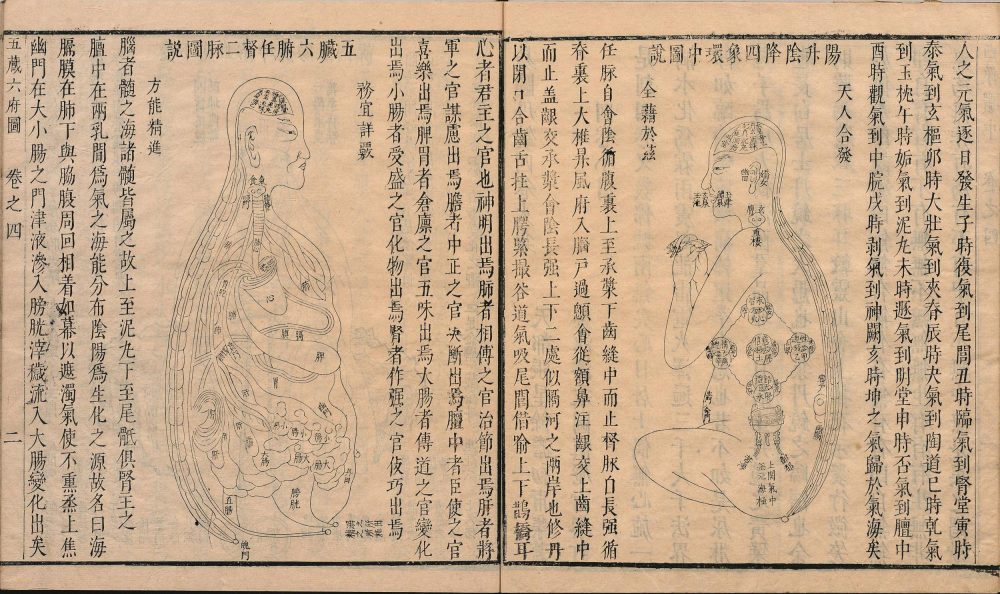 人之元氣逐日發生子時復氣到尾閭丑時臨氣到腎堂寅時
泰氣到玄樞夘時大壯氣到夾脊辰時夬氣到陶道巳時乹氣
到玉枕午時姤氣到泥丸未時遯氣到明堂申時否氣到膻中
酉時觀氣到中脘戌時剥氣到神闕亥時坤之氣歸於氣海矣
陽升陰降四象環中圖說
天人合發
重樓
上閭氣中
全藉於茲
任脉自會陰循腹裏上至承漿下齒縫中而止督脉自長强循
脊裏上大椎昇風府入腦戶過顖會從額鼻汪齦交上齒縫中
而止盖齦交承漿會陰長强上下二處似隔河之兩岸也修丹
以閉口合齒舌拄上腭緊撮谷道氣吸尾閭借喻上下鵲橋耳
心者君主之官也神明出焉肺者相傳之官治節出焉肝者將
軍之官謀慮出焉膽者中正之官决斷出焉膻中者臣使之官
喜樂出焉脾胃者倉廪之官五味出焉大腸者傳道之官變化
出焉小腸者受盛之官化物出焉腎者作强之官伎巧出焉
五臟六腑任督二脉圖說
務宜詳覈
氣
食
肺
心
脾
胃
肝
小腸
大腸
膀胱
魄門
方能精進
腦者髓之海諸髓皆屬之故上至泥丸下至尾骶俱腎主之
膻中在兩乳間為氣之海能分布陰陽為生化之源故名曰海
膈膜在肺下與脇腹周回相着如幕以遮濁氣使不熏蒸上焦
幽門在大小腸之門津液滲入膀胱滓穢流入大腸變化出矣
五臟六府圖 卷之四 二